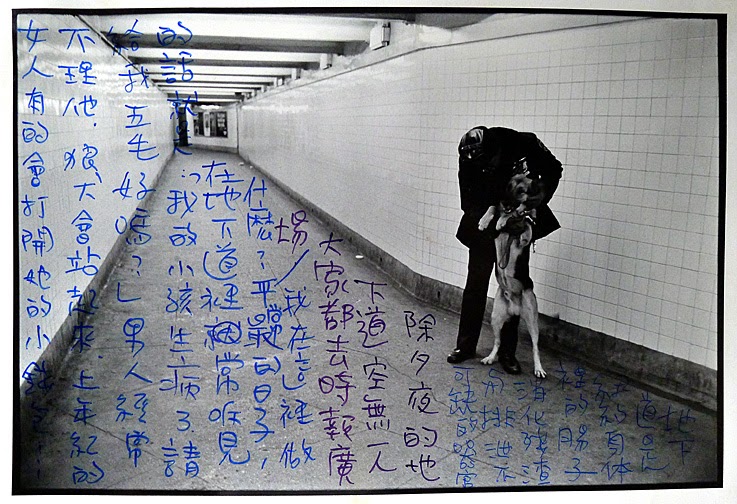 地下
道是
紐約身体
裡的腸子
消化殘渣
和排泄不
可缺的器官
除夕夜的地
下道空無一人
大家都去時報廣
場/我在這裡做
什麼?平常的日子,
在地下道裡最常听見
的話就是:「我的小孩生病了請
給我五毛好嗎?」男人經常
不理他,狼犬會站起來,上年紀的
女人有的會打開她的小錢包!